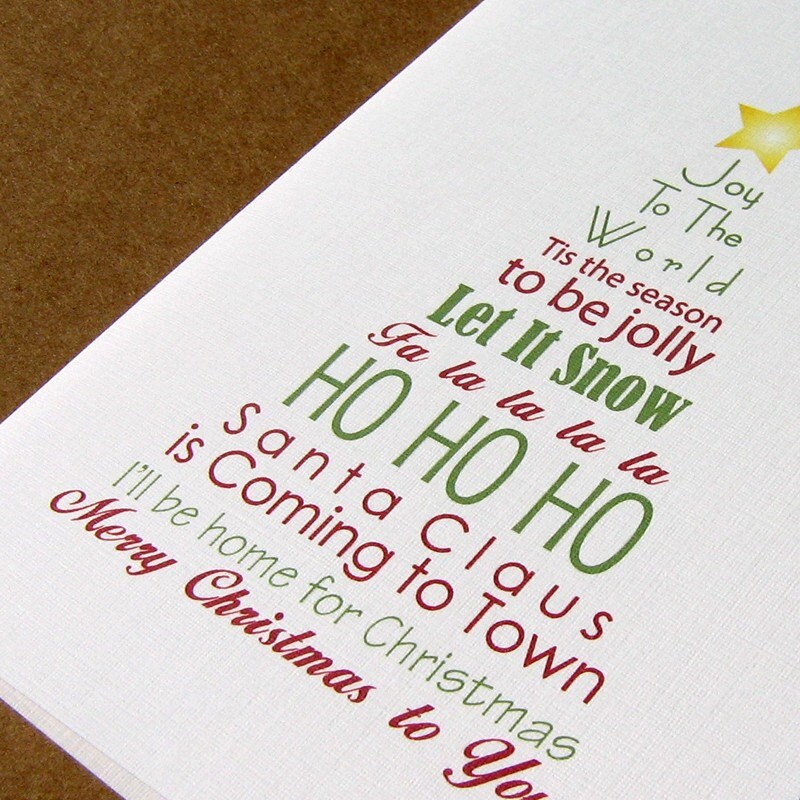 Joy
To The
World
Tis the season
to be jolly
Let It Snow
Fa la la la la
HO HO HO
Santa Claus
is Coming to Town
I'll be home for Christmas
Merry Christmas to You